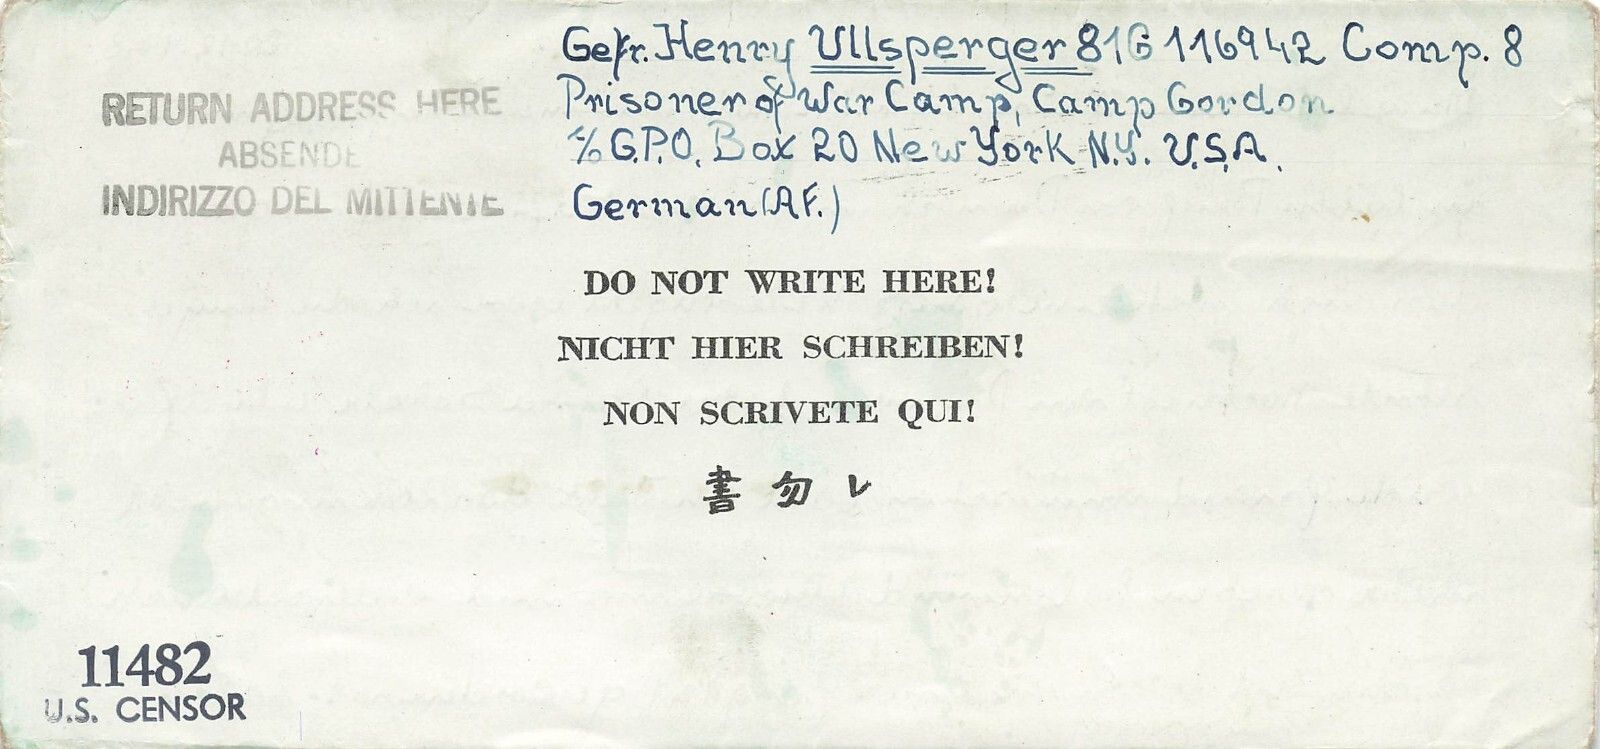 Gefr. Henry Ullsperger 81G 116942 Comp. 8
Prisoner of War Camp, Camp Gordon
c/o G.P.O. Box 20 New York N.Y. U.S.A.
German (AF.)
RETURN ADDRESS HERE
ABSENDE
INDIRIZZO DEL MITTENTE
DO NOT WRITE HERE!
NICHT HIER SCHREIBEN!
NON SCRIVETE QUI!
書勿レ
11482
U.S. CENSOR